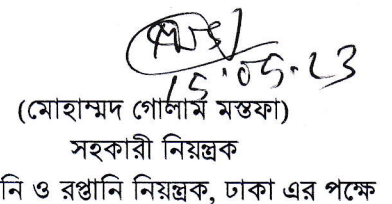 15.05.23
(মোহাম্মদ গোলাম মস্তফা)
সহকারী নিয়ন্ত্রক
নি ও রপ্তানি নিয়ন্ত্রক, ঢাকা এর পক্ষে